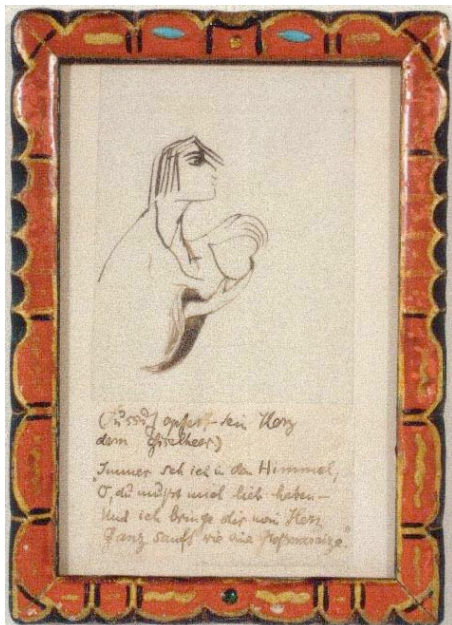 (Jussuf opfert sein Herz
dem Giselheer)
"Immer seh ich in den Himmel,
O, du mußt mich lieb haben—
Und ich bringe dir mein Herz
Ganz sanft wie eine"